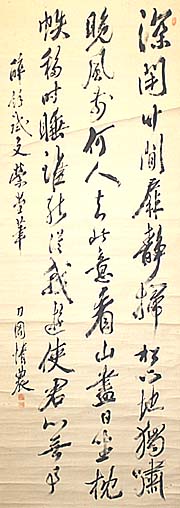 深閉竹間扉靜掃松下地獨嘯
晚風前何人知此意看山盡日坐枕
帙移時睡誰能從我遊使君心無事